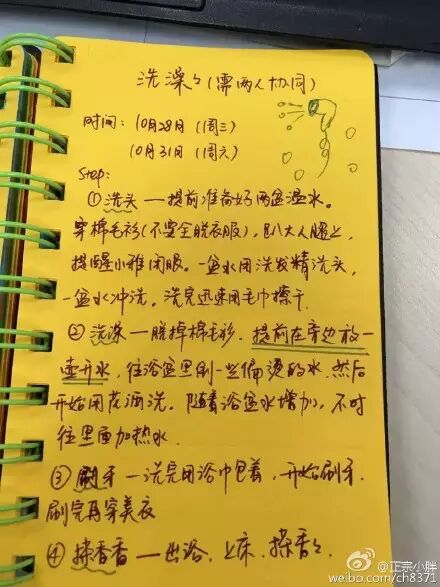 洗澡々(需两人协同)
时间：10月28日(周三)
10月31日(周六)
Step:
①洗头—提前准备好两盆温水。
穿棉毛衫(不要全脱衣服),趴大人腿上,
提醒小雅闭眼。一盆水用洗发精洗头,
一盆水冲洗,洗完迅速用毛巾擦干.
②洗澡—脱掉棉毛衫.提前在旁边放一
壶开水,往浴盆里倒一些偏烫的水.然后
开始用花洒洗.随着浴盆水增加,不时
往里面加热水.
③刷牙—洗完用浴巾包着,开始刷牙.
刷完再穿美衣
④搽香香—出浴.上床.搽香々.
@正宗小胖
weibo.com/ch8371